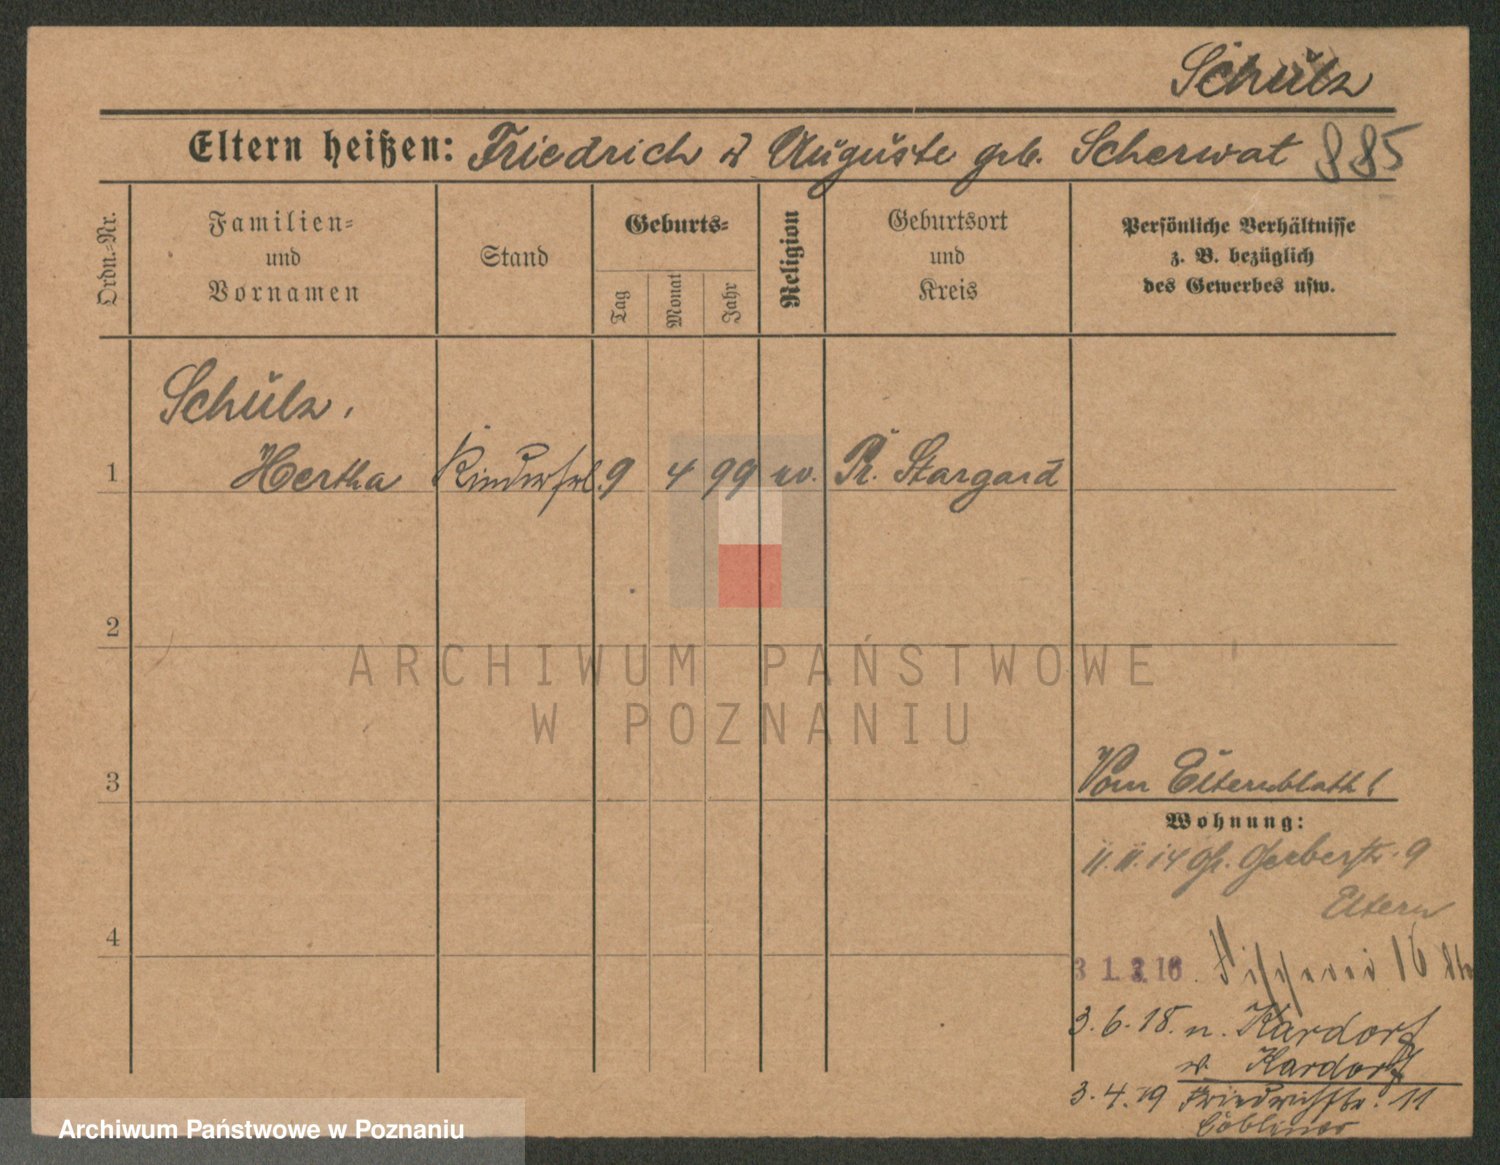 Schülz
Eltern heißen: Friedrich u Auguste geb. Scherwat 885
Ordn.-Nr.
Familien-
und
Vornamen
Stand
Geburts-
Tag
Monat
Jahr
Religion
Geburtsort
und
Kreis
Persönliche Verhältnisse
z. B. bezüglich
des Gewerbes usw.
Schülz,
1 Hertha Kinderfrl. 9 4 99 ev. Pr. Stargard
2
ARCHIWUM PAŃSTWOWE
W POZNANIU
3
Vom Elternblatt!
Wohnung:
11.11.14 Gr. Gerberstr. 9
Eltern
4
3 1.3.16 16
3.6.18. n. Kardorf
w. Kardorf
3.4.19 Friedrichstr. 11
Archiwum Państwowe w Poznaniu